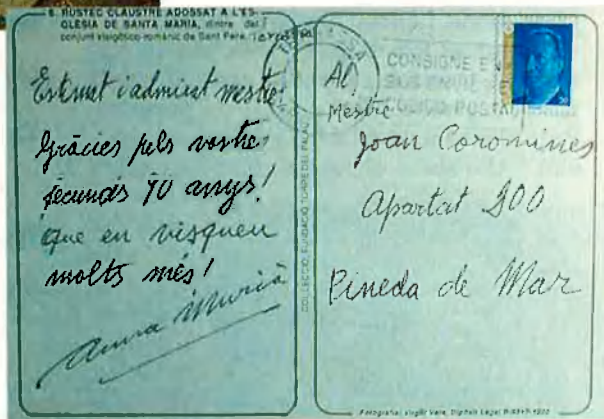 6. RÚSTEC CLAUSTRE ADOSSAT A L'ES-
GLÉSIA DE SANTA MARIA, dintre del
conjunt visigòtico-romànic de Sant Pere.
Estimat i admirat mestre:
Gràcies pels vostres
fecunds 90 anys!
Que en visqueu
molts més!
Anna Murià
COL·LECCIÓ: FUNDACIÓ TORRE DEL PALAU
CONSIGNE E
SUS ENVIOS
CODIGO POSTAL
Al
Mestre
Joan Coromines
Apartat 200
Pineda de Mar